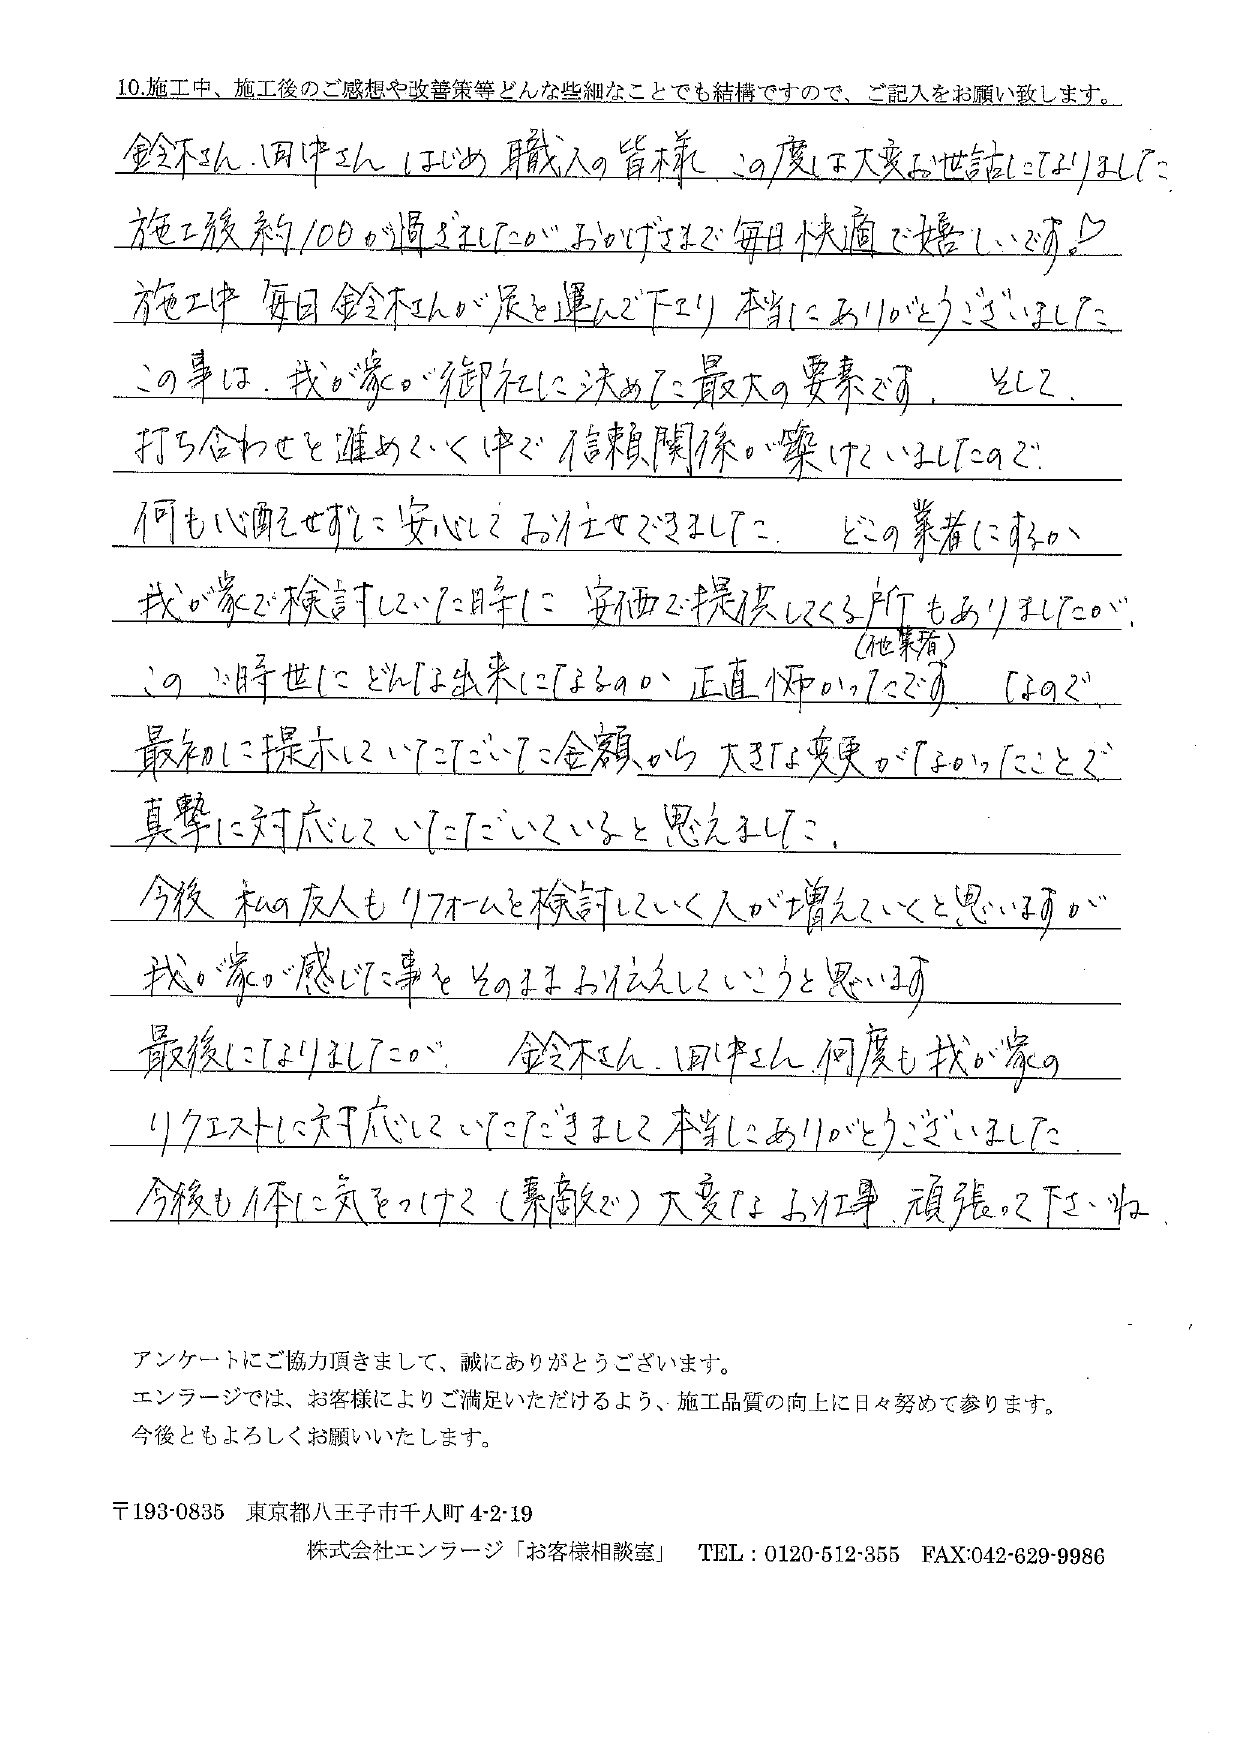 10.施工中、施工後のご感想や改善策等どんな些細なことでも結構ですので、ご記入をお願い致します。
鈴木さん、田中さん はじめ 職人の皆様 この度は大変お世話になりました
施工後 約10日が過ぎましたが おかげさまで毎日快適で嬉しいです♡
施工中 毎日 鈴木さんが足を運んで下さり 本当にありがとうございました
この事は、我が家が御社に決めた最大の要素です。 そして、
打ち合わせを進めていく中で 信頼関係が築けていましたので、
何も心配せずに安心してお任せできました。 どこの業者にするか
我が家で検討していた時に 安価で提供してくる所もありましたが、
(他業者)
このご時世に どんな出来になるのか 正直怖かったです。 なので、
最初に提示していただいた金額から 大きな変更がなかったことで
真摯に対応していただいていると思えました。
今後 私の友人もリフォームを検討していく人が増えていくと思いますが
我が家が感じた事を そのままお伝えしていこうと思います
最後になりましたが、 鈴木さん、田中さん、何度も我が家の
リクエストに対応していただきまして本当にありがとうございました
今後も体に気をつけて(素敵で)大変なお仕事、頑張って下さいね。
アンケートにご協力頂きまして、誠にありがとうございます。
エンラージでは、お客様によりご満足いただけるよう、施工品質の向上に日々努めて参ります。
今後ともよろしくお願いいたします。
〒193-0835 東京都八王子市千人町 4-2-19
株式会社エンラージ「お客様相談室」 TEL：0120-512-355 FAX:042-629-9986